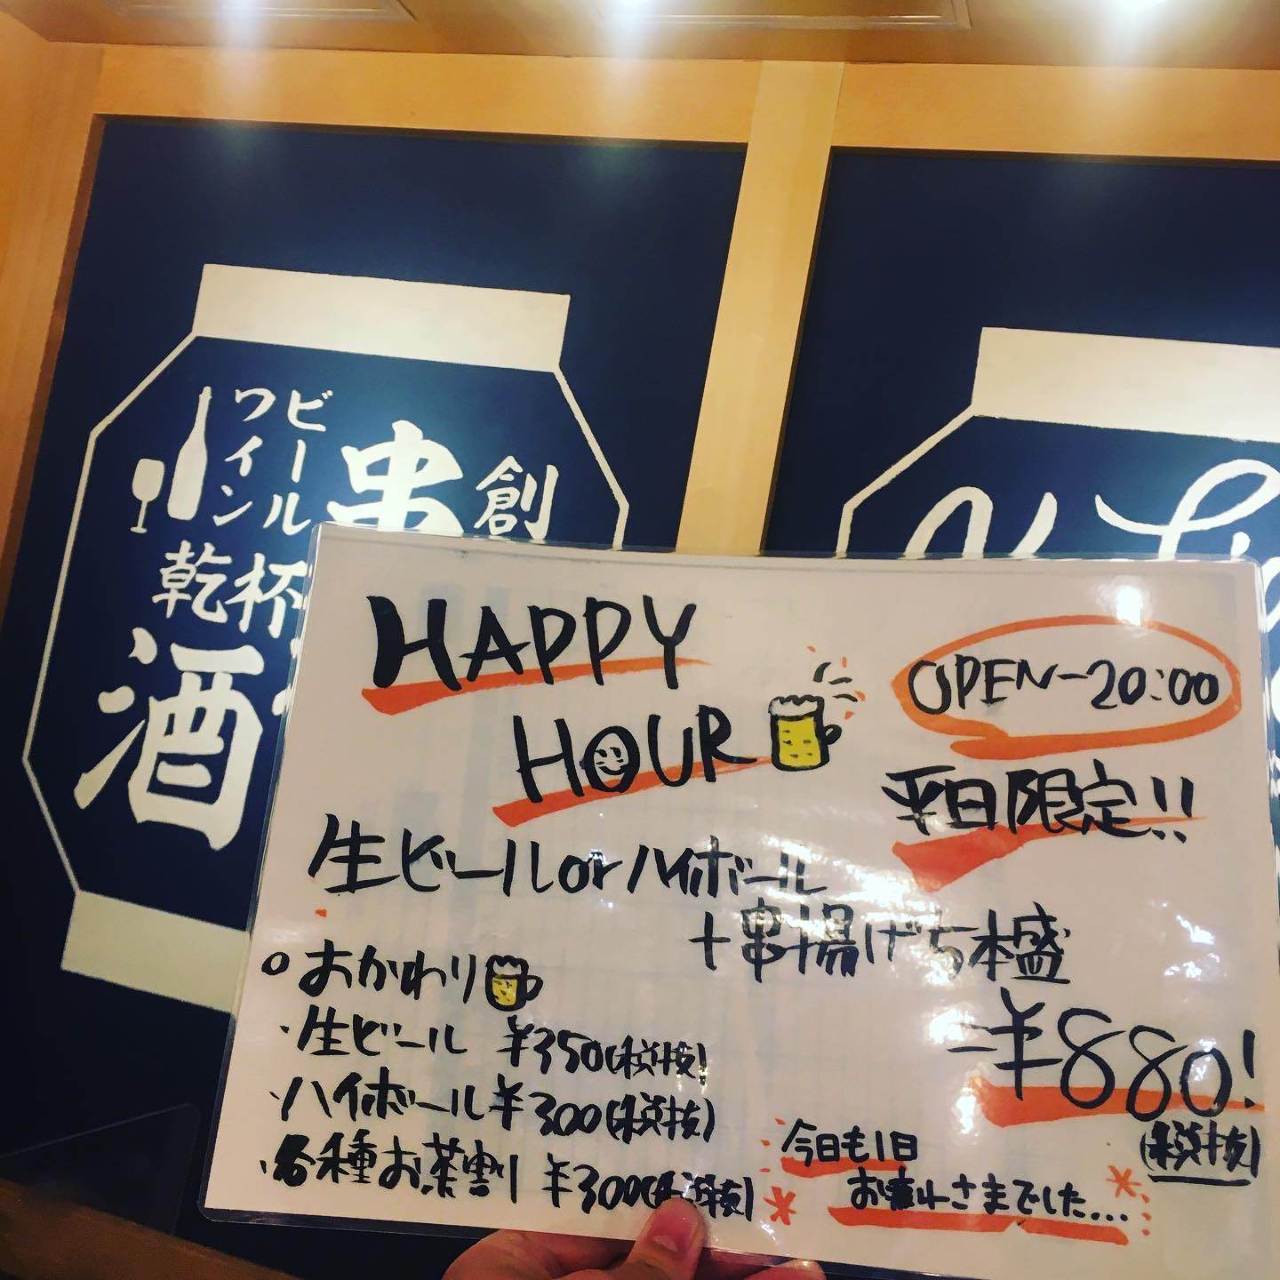 創
串
ビール
ワイン
乾杯
酒
HAPPY
HOUR
OPEN-20:00
平日限定!!
生ビールorハイボール
+串揚げ5本盛
¥880!
(税抜)
おかわり
・生ビール ¥350(税抜)
・ハイボール ¥300(税抜)
・各種お茶割 ¥300(税抜)
今日も1日
お疲れさまでした...